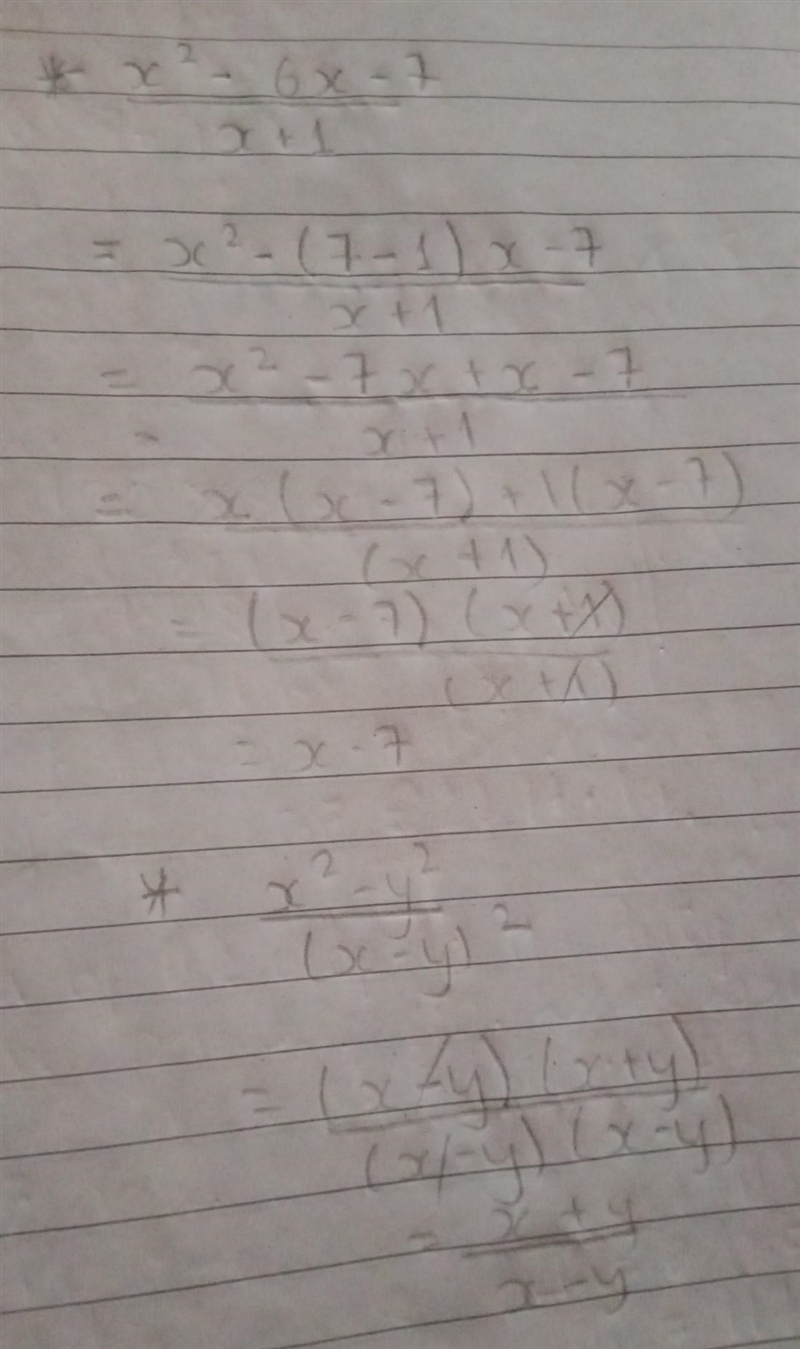 * x² - 6x - 7
x + 1
= x² - (7 - 1) x - 7
x + 1
= x² - 7x + x - 7
x + 1
= x (x - 7) + 1 (x - 7)
(x + 1)
= (x - 7) (x + 1)
(x + 1)
= x - 7
* x² - y²
(x - y)²
= (x - y) (x + y)
(x - y) (x - y)
= x + y
x - y